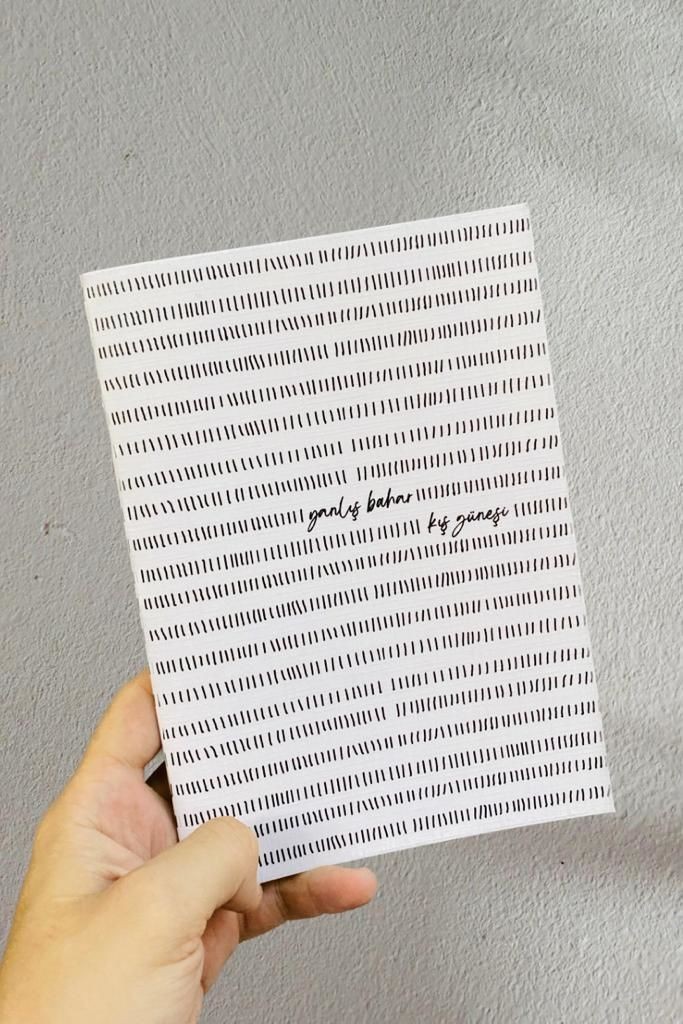 yanlış bahar
kış güneşi